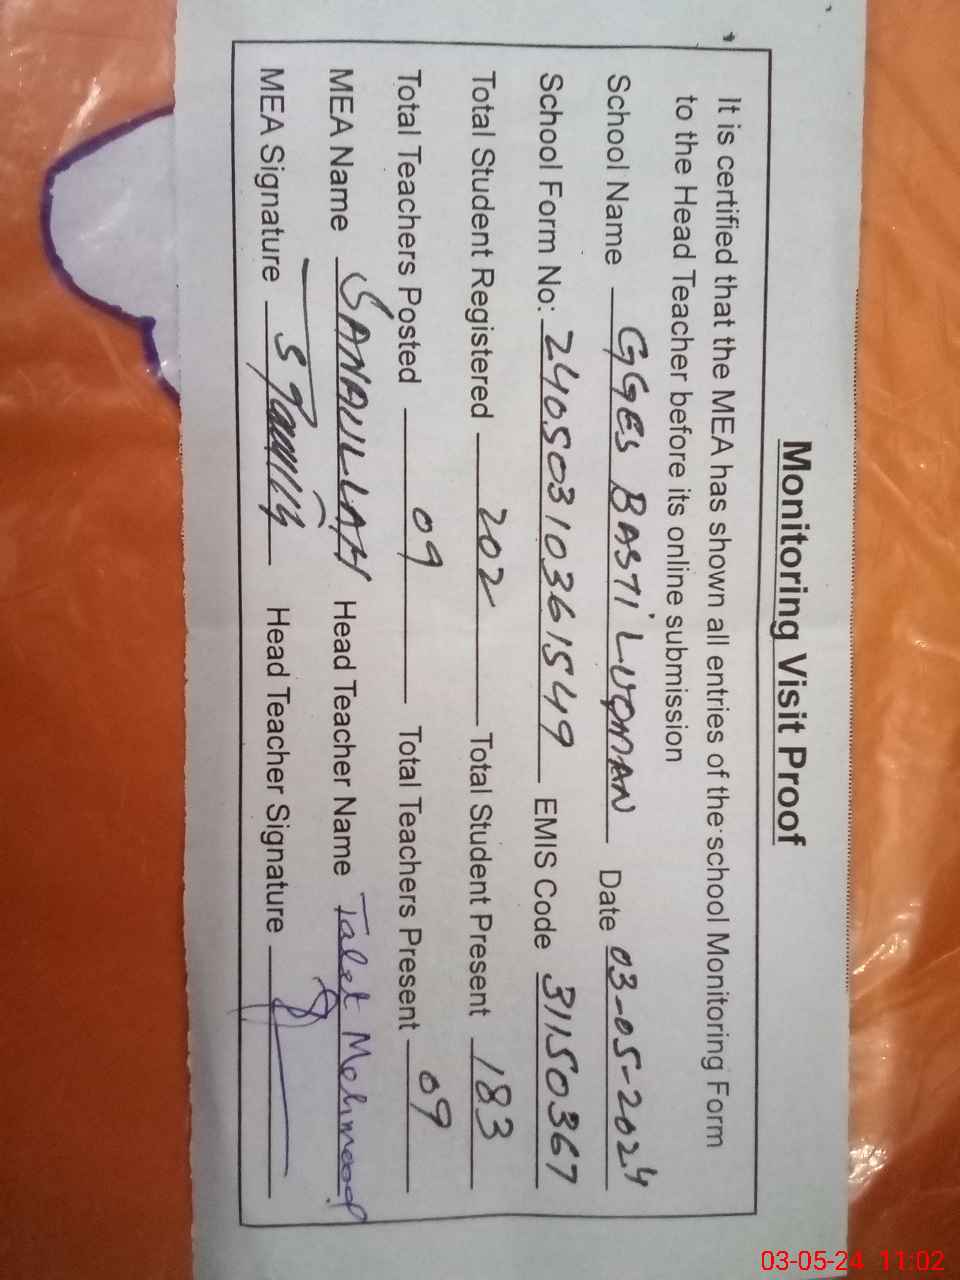 Monitoring Visit Proof
It is certified that the MEA has shown all entries of the school Monitoring Form
to the Head Teacher before its online submission
School Name GGES BASTI LUQMAN Date 03-05-2024
School Form No: 24050310361549 EMIS Code 31150367
Total Student Registered 202 Total Student Present 183
Total Teachers Posted 09 Total Teachers Present 09
MEA Name SANAULLAH Head Teacher Name Talet Mehmood
MEA Signature Head Teacher Signature
03-05-24 11:02